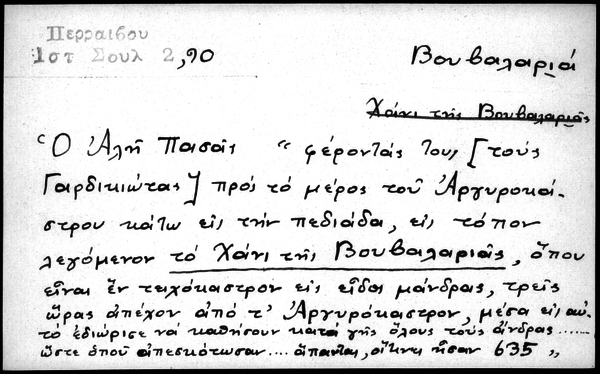 Περραιβου
Ιστ Σουλ 2,90
Βουβαλαριά
Χάνι τῆς Βουβαλαριᾶς
Ὁ Ἀλῆ Πασᾶς "φέροντάς τους [τοὺς
Γαρδικιώτας] πρὸς τὸ μέρος τοῦ Ἀργυροκά-
στρου κάτω εἰς τὴν πεδιάδα, εἰς τόπον
λεγόμενον τὸ Χάνι τῆς Βουβαλαριᾶς, ὅπου
εἶναι ἓν τειχόκαστρον εἰς εἶδος μάνδρας, τρεῖς
ὥρας ἀπέχον ἀπὸ τ' Ἀργυρόκαστρον, μέσα εἰς αὐ-
τὸ ἐδιώρισε νὰ καθήσουν κατὰ γῆς ὅλους τοὺς ἄνδρας ......
ὥστε ὁποῦ ἀπεσκότωσαν .... ἅπαντας, οἵτινες ἦσαν 635 "